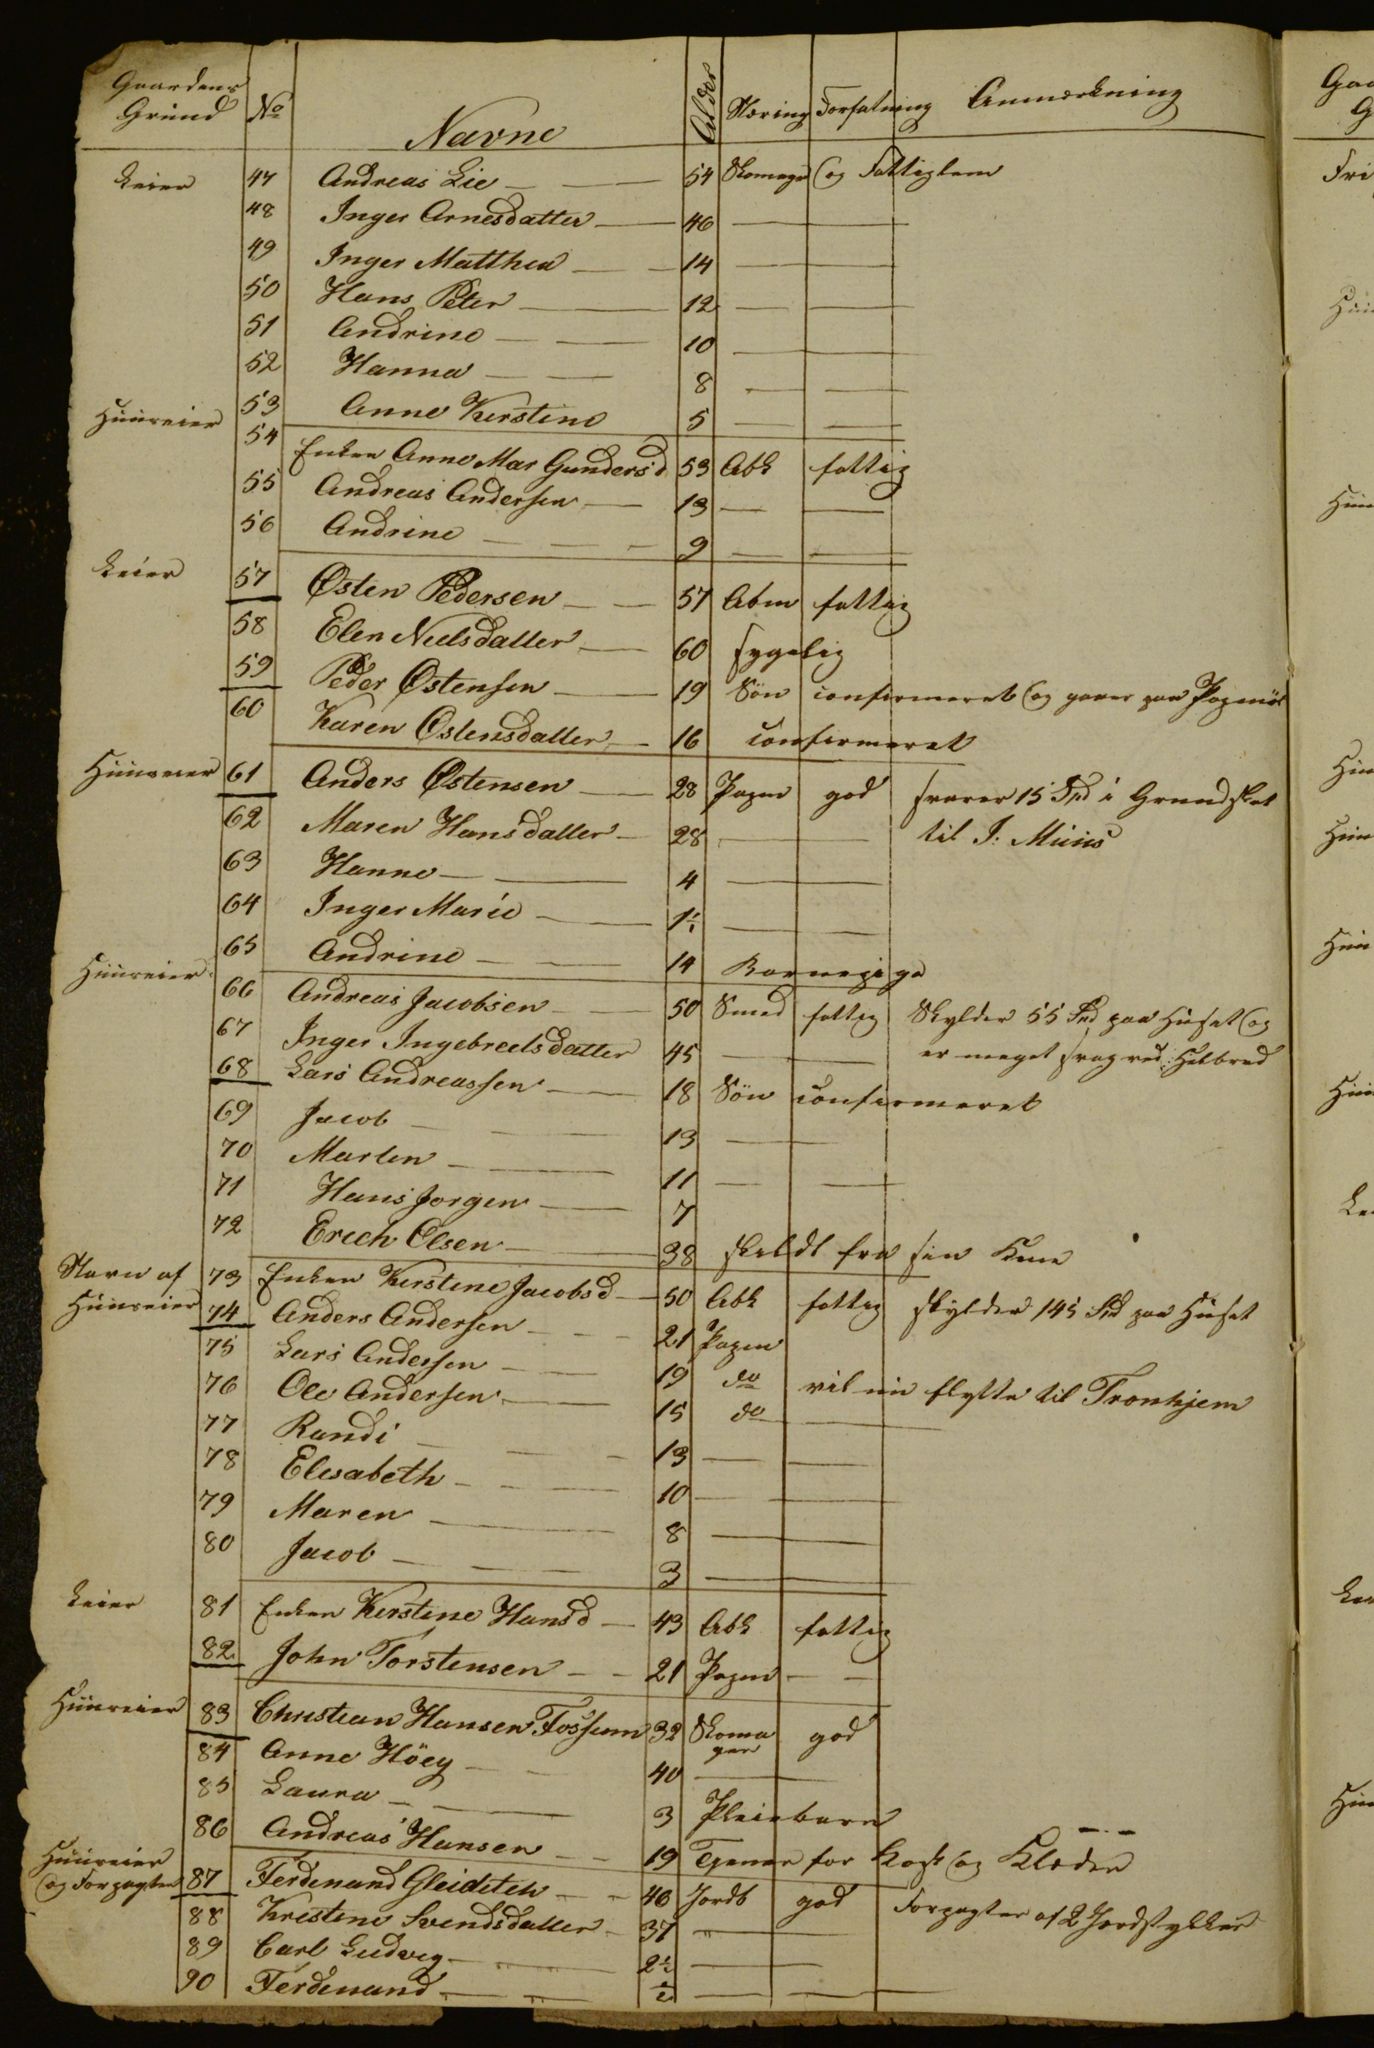 Gaardens Grund No Navne Alder Næring Forfatning Anmærkning
Leier 47 Andreas Lie 54 Skomager og Fattiglem
48 Inger Arnesdatter 46
49 Inger Matthea 14
50 Hans Peter 12
51 Andrine 10
52 Hanna 8
53 Anne Kirstine 5
Huuseier 54 Enken Anne Mar Gundersd 53 Abk fattig
55 Andreas Andersen 13
56 Andrine 9
Leier 57 Østen Pedersen 57 Abm fattig
58 Elen Nielsdatter 60 sygelig
59 Peder Østensen 19 Sön confirmeret og gaaer paa
60 Karen Østensdatter 16 confirmeret
Huuseier 61 Anders Østensen 28 Papm god svarer 15 Spd i Grundskat
62 Maren Hansdatter 28 til J: Muus
63 Hanne 4
64 Inger Marie 1½
65 Andrine 14 Barnepige
Huuseier 66 Andreas Jacobsen 50 Smed fattig Skylder 55 Spd paa Huset og
67 Inger Ingebretsdatter 45 er meget svag ved Helbred
68 Lars Andreassen 18 Sön confirmeret
69 Jacob 13
70 Marten 11
71 Hans Jørgen 7
72 Erich Olsen 38 skildt fra sin Kone
Navn af Huuseier 73 Enken Kirstine Jacobsd 50 Abk fattig skylder 145 Spd paa Huset
74 Anders Andersen 21 Papm
75 Lars Andersen 19 do vil nu flytte til Tronhjem
76 Ole Andersen 15 do
77 Randi 13
78 Elisabeth 10
79 Maren 8
80 Jacob 3
Leier 81 Enken Kirstine Hansd 43 Abk fattig
82 John Torstensen 21 Papm
Huuseier 83 Christian Hansen Fossum 32 Skomager god
84 Anne Höeg 40
85 Laura 3 Pleiebarn
86 Andreas Hansen 19 Tjener for Kost og Klæder
Huuseier og Forpagter 87 Ferdenand Gleiditch 46 Jordb god Forpagter af 2 Jordstykker
88 Kristine Svendsdatter 37
89 Carl Ludvig 2½
90 Ferdenand ½